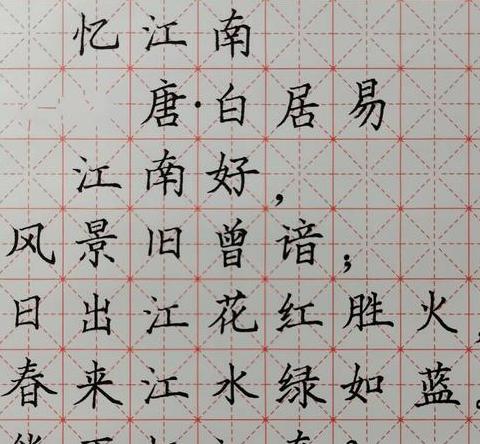 忆江南
唐·白居易
江南好，
风景旧曾谙；
日出江花红胜火，
春来江水绿如蓝。